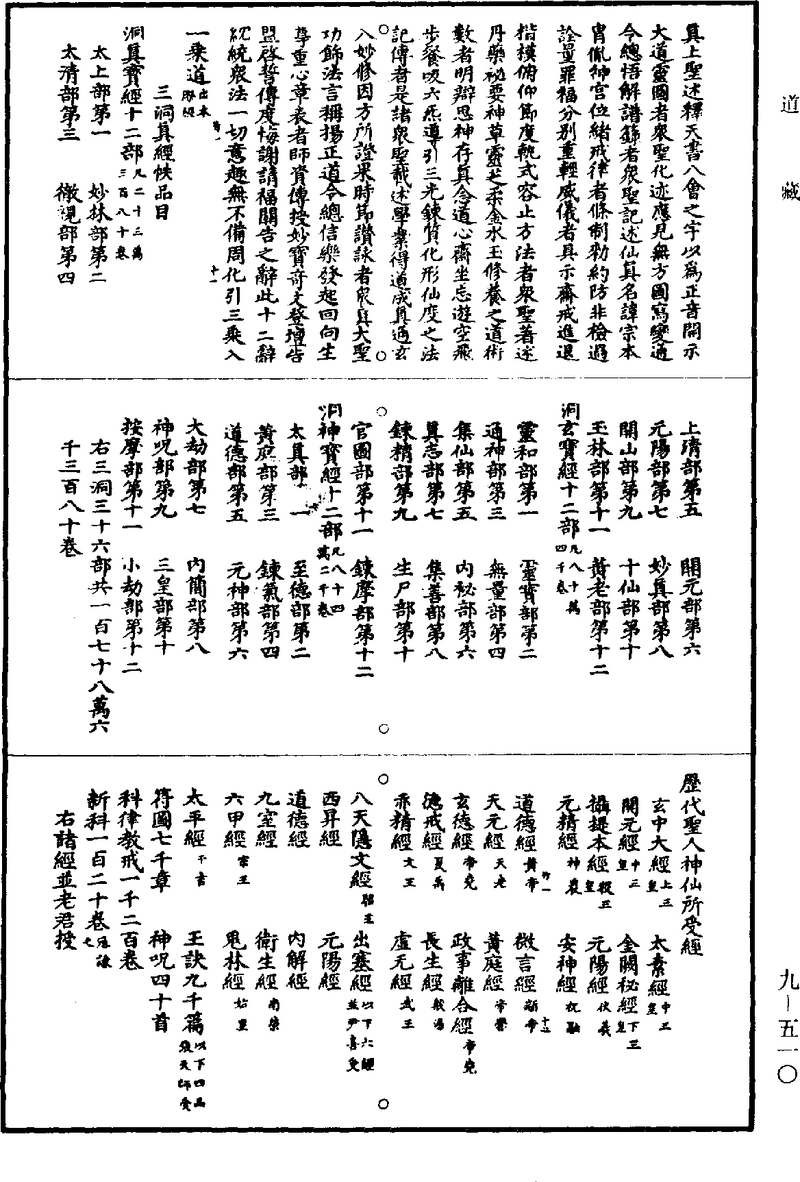 道藏
真上聖述釋天書八會之字以爲正音開示
大道靈圖者衆聖化迹應見無方圖寫變通
令總悟解譜籙者衆聖記述仙真名諱宗本
胄胤神宮位緒戒律者條制勒約防非檢過
詮量罪福分別重輕威儀者具示齋戒進退
楷模俯仰節度軌式容止方法者衆聖著述
丹藥祕要神草靈芝柔金水玉修養之道術
數者明辯思神存真念道心齋坐忘遊空飛
步餐吸六炁導引三光鍊質化形仙度之法
記傳者是諸衆聖載述學業得道成真通玄
入妙修因方所證果時節讚詠者衆真大聖
功飾法言稱揚正道令總信樂發起回向生
尊重心章表者師資傳授妙寶奇文登壇告
盟啓誓傳度悔謝請福關告之辭此十二辭
統統衆法一切意趣無不備周化引三乘入
一乘道出本際經
三洞真經帙品目
洞真寶經十二部凡二十三萬三百八十卷
太上部第一 妙林部第二
太清部第三 徹視部第四
上清部第五 開元部第六
元陽部第七 妙真部第八
開山部第九 十仙部第十
玉林部第十一 黃老部第十二
洞玄寶經十二部凡八十萬四千卷
靈和部第一 靈寶部第二
通神部第三 無量部第四
集仙部第五 内祕部第六
真志部第七 集善部第八
鍊精部第九 生尸部第十
官圖部第十一 鍊摩部第十二
洞神寶經十二部凡八十四萬二千卷
太真部一 至德部第二
黃庭部第三 鍊氣部第四
道德部第五 元神部第六
大劫部第七 内簡部第八
神呪部第九 三皇部第十
按摩部第十一 小劫部第十二
右三洞三十六部共一百七十八萬六
千三百八十卷
歷代聖人神仙所受經
玄中大經上三皇 太素經中三皇
開元經中三皇 金闕秘經下三皇
攝提本經提五皇 元陽經伏羲
元精經神農 安神經祝融
道德經黃帝 微言經顓帝
天元經天老 黃庭經帝嚳
玄德經帝堯 政事離合經帝堯
德戒經夏禹 長生經殷湯
赤精經文王 虛无經武王
八天隱文經昭王 出塞經以下六經並尹喜受
西昇經 元陽經
道德經 内解經
九室經 衛生經南榮
六甲經 鬼林經
太平經干吉 玉訣九千篇以下四品張天師受
符圖七千章 神呪四十首
科律教戒一千二百卷
新科一百二十卷
右諸經並老君授
九-五一〇